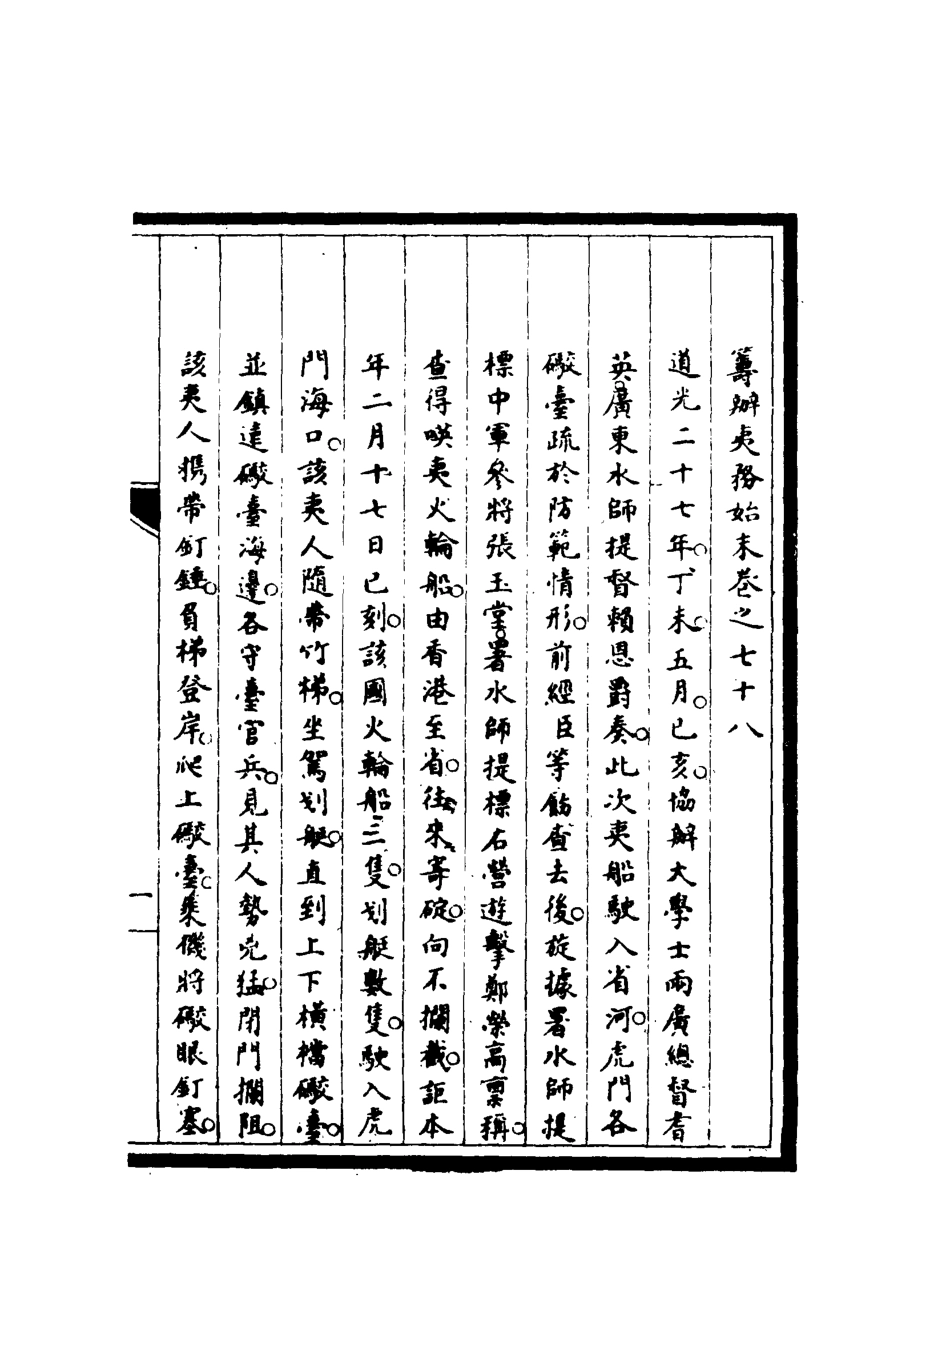 籌辦夷務始末卷之七十八
道光二十七年。丁未。五月。己亥。協辦大學士兩廣總督耆
英。廣東水師提督賴恩爵奏。此次夷船駛入省河。虎門各
礮臺疏於防範情形。前經臣等飭查去後。旋據署水師提
標中軍參將張玉堂。署水師提標右營遊擊鄭榮高稟稱。
查得㗆夷火輪船。由香港至省。往來寄碇。向不攔截。詎本
年二月十七日巳刻。該國火輪船三隻。划艇數隻。駛入虎
門海口。該夷人隨帶竹梯。坐駕划艇。直到上下橫檔礮臺。
並鎮遠礮臺海邊。各守臺官兵。見其人勢兇猛。閉門攔阻。
該夷人携帶釘錘。負梯登岸。爬上礮臺。乘機將礮眼釘塞。
一